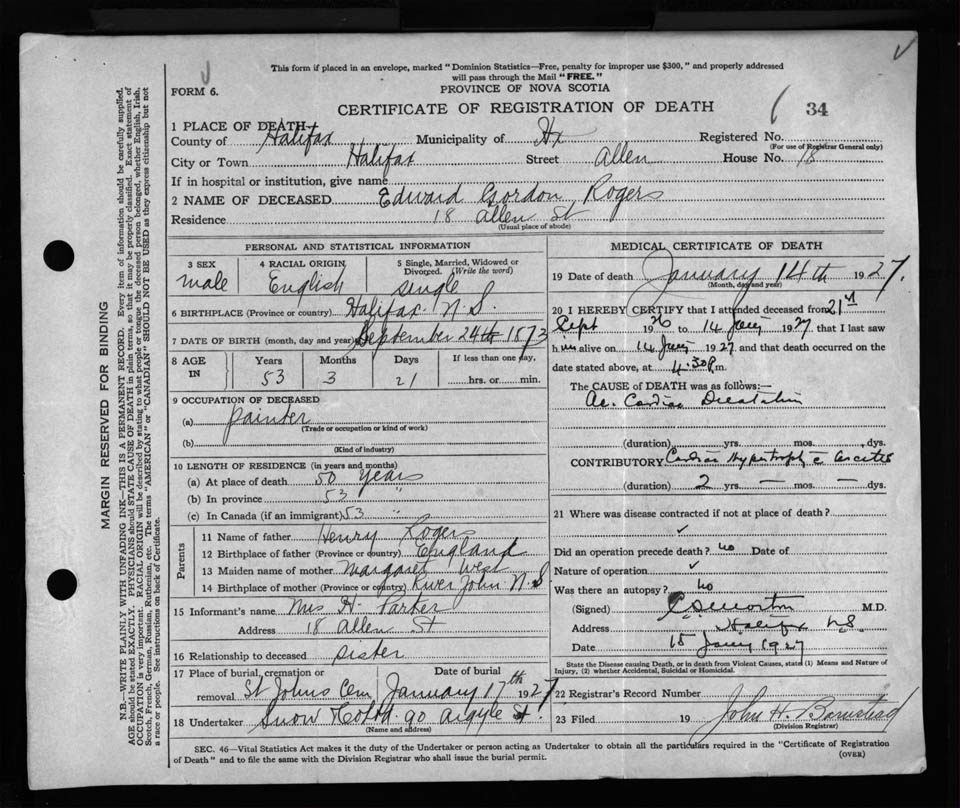 This form if placed in an envelope, marked "Dominion Statistics—Free, penalty for improper use $300," and properly addressed
will pass through the Mail "FREE."
FORM 6.
PROVINCE OF NOVA SCOTIA
CERTIFICATE OF REGISTRATION OF DEATH
34
1 PLACE OF DEATH—
County of Halifax Municipality of Hx Registered No.
(For use of Registrar General only)
City or Town Halifax Street Allen House No. 18
If in hospital or institution, give name
2 NAME OF DECEASED Edward Gordon Rogers
Residence 18 Allen St
(Usual place of abode)
PERSONAL AND STATISTICAL INFORMATION
3 SEX 4 RACIAL ORIGIN 5 Single, Married, Widowed or
Divorced. (Write the word)
male English single
6 BIRTHPLACE (Province or country) Halifax N.S.
7 DATE OF BIRTH (month, day and year) September 24th 1873
8 AGE IN Years Months Days If less than one day,
53 3 21 hrs. or min.
9 OCCUPATION OF DECEASED
(a) painter
(Trade or occupation or kind of work)
(b)
(Kind of industry)
10 LENGTH OF RESIDENCE (in years and months)
(a) At place of death 50 years
(b) In province 53 "
(c) In Canada (if an immigrant) 53 "
Parents
11 Name of father Henry Rogers
12 Birthplace of father (Province or country) England
13 Maiden name of mother Margaret West
14 Birthplace of mother (Province or country) River John N.S.
15 Informant's name Mrs H. Parker
Address 18 Allen St
16 Relationship to deceased sister
17 Place of burial, cremation or Date of burial
removal St Johns Cem January 17th 1927
18 Undertaker Snow & Co Ltd. 90 Argyle St.
(Name and address)
MEDICAL CERTIFICATE OF DEATH
19 Date of death January 14th 1927.
(Month, day and year)
20 I HEREBY CERTIFY that I attended deceased from 21st
Sept 1926 to 14 Jany 1927, that I last saw
him alive on 14 Jany 1927 and that death occurred on the
date stated above, at 4.30 p.m.
The CAUSE OF DEATH was as follows:—
Ac. Cardiac Dilatation
(duration) yrs. mos. dys.
CONTRIBUTORY Cardiac Hypertrophy c Ascites
(duration) 2 yrs. — mos. — dys.
21 Where was disease contracted if not at place of death?
✓
Did an operation precede death? no Date of
Nature of operation ✓
Was there an autopsy? no
(Signed) M.D.
Address Halifax N.S.
Date 15 Jany 1927
State the Disease causing Death, or in death from Violent Causes, state (1) Means and Nature of
Injury, (2) whether Accidental, Suicidal or Homicidal.
22 Registrar's Record Number
23 Filed 19 John H. Barnstead
(Division Registrar)
SEC. 46—Vital Statistics Act makes it the duty of the Undertaker or person acting as Undertaker to obtain all the particulars required in the "Certificate of Registration
of Death" and to file the same with the Division Registrar who shall issue the burial permit.
(OVER)
MARGIN RESERVED FOR BINDING
N.B.—WRITE PLAINLY WITH UNFADING INK—THIS IS A PERMANENT RECORD. Every item of information should be carefully supplied.
AGE should be stated EXACTLY. PHYSICIANS should STATE CAUSE OF DEATH in plain terms, so that it may be properly classified. Exact statement of
OCCUPATION is very important. RACIAL ORIGIN will be described by stating to what people or tongue the deceased person belonged, whether English, Irish,
Scotch, French, German, Russian, Ruthenian, etc. The terms "AMERICAN" or "CANADIAN" SHOULD NOT BE USED as they express citizenship but not
a race or people. See instructions on back of Certificate.